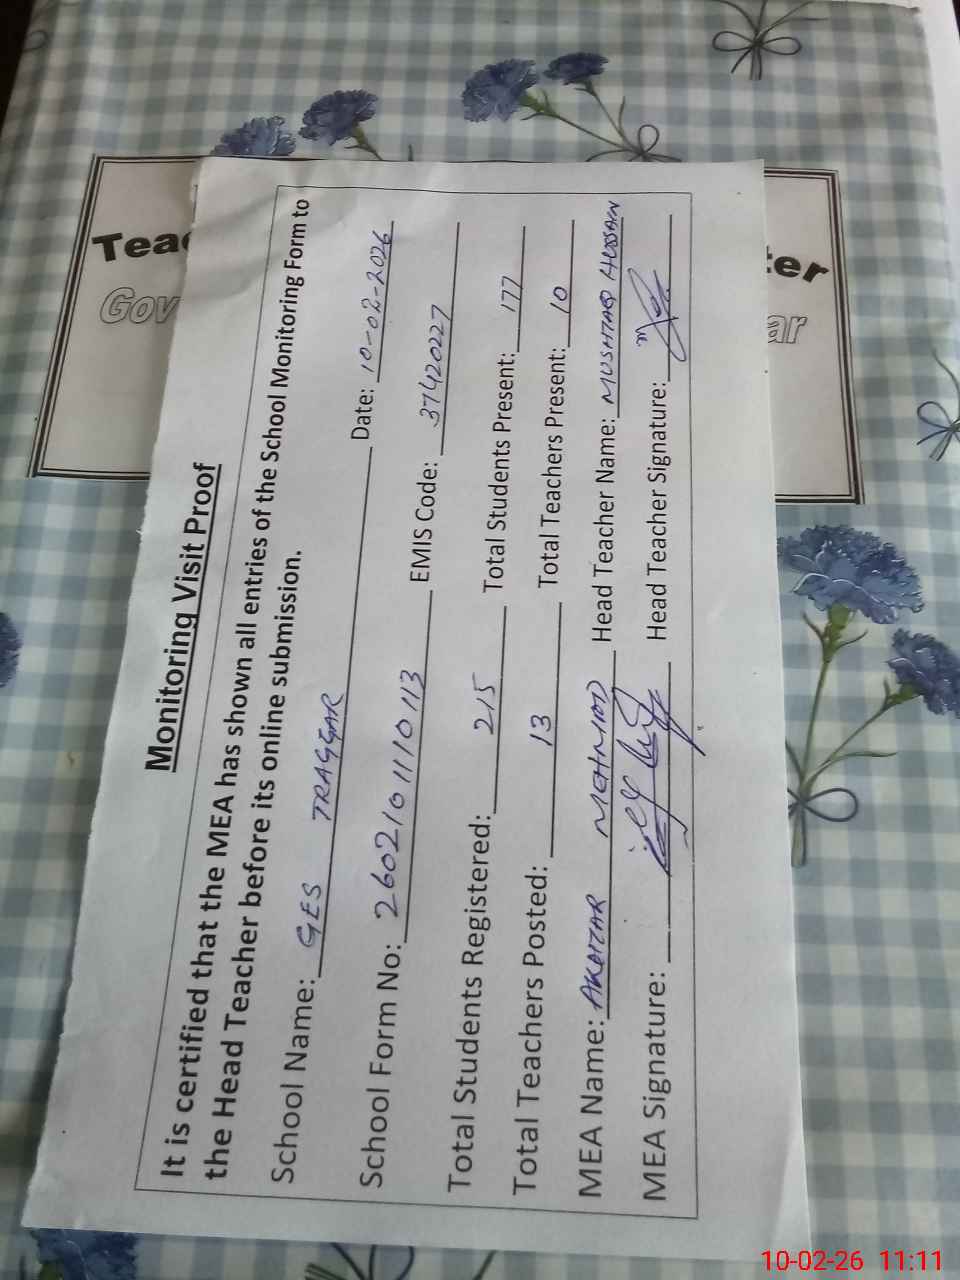 Monitoring Visit Proof
It is certified that the MEA has shown all entries of the School Monitoring Form to
the Head Teacher before its online submission.
School Name: GES TRAGGAR Date: 10-02-2026
School Form No: 2602101110113 EMIS Code: 37420227
Total Students Registered: 215 Total Students Present: 177
Total Teachers Posted: 13 Total Teachers Present: 10
MEA Name: AKHTAR MEHMOOD Head Teacher Name: MUSHTAQ HUSSAIN
MEA Signature: Head Teacher Signature:
Teac ter
Gov ar
10-02-26 11:11